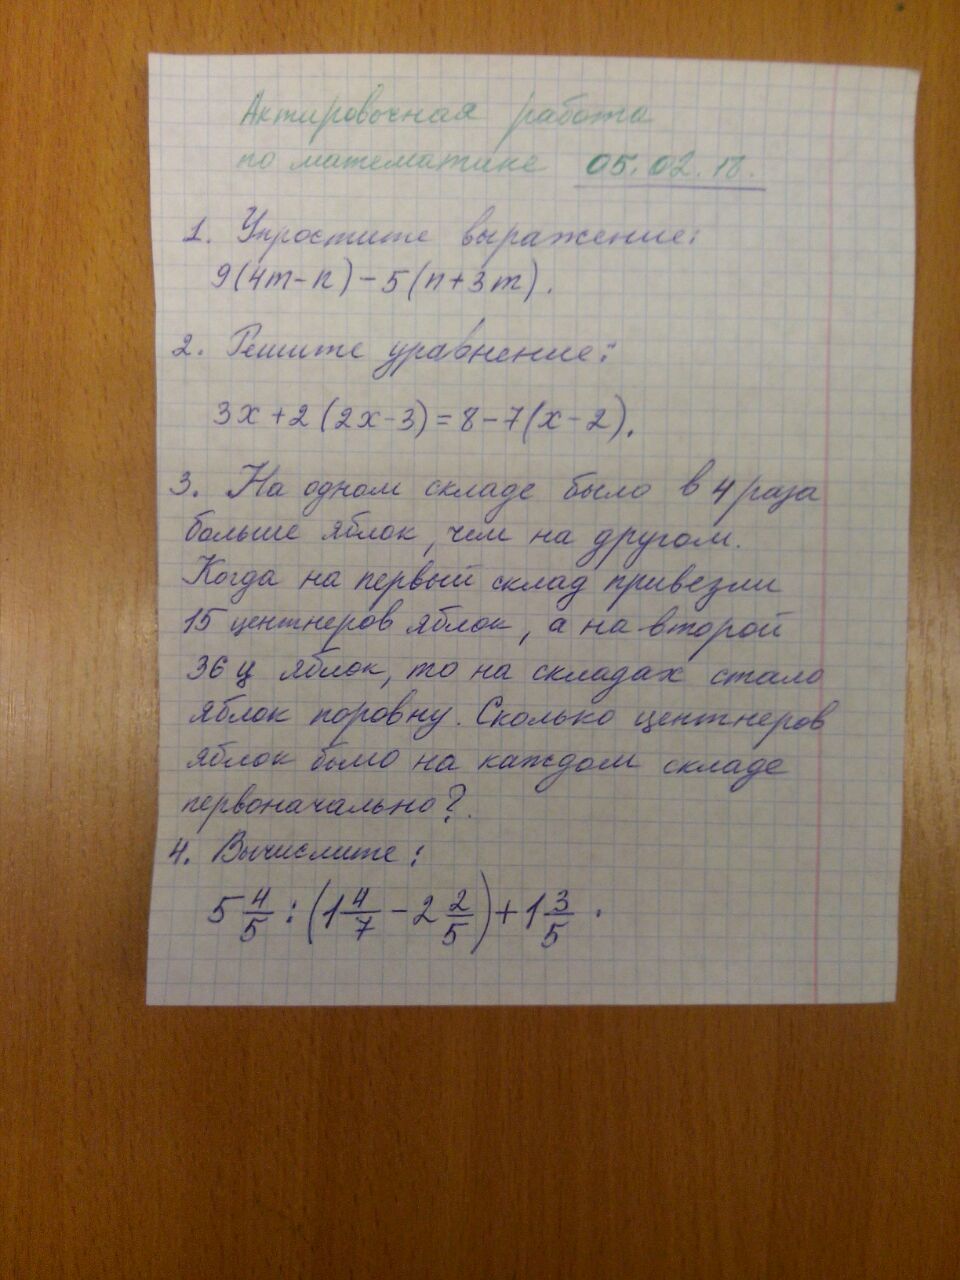 Актировочная работа
по математике 05.02.18.
1. Упростите выражение:
9(4m-n)-5(n+3m).
2. Решите уравнение:
3x+2(2x-3)=8-7(x-2).
3. На одном складе было в 4 раза
больше яблок, чем на другом.
Когда на первый склад привезли
15 центнеров яблок, а на второй
36 ц яблок, то на складах стало
яблок поровну. Сколько центнеров
яблок было на каждом складе
первоначально?
4. Вычислите:
5 4/5 : (1 4/7 - 2 2/5) + 1 3/5 .